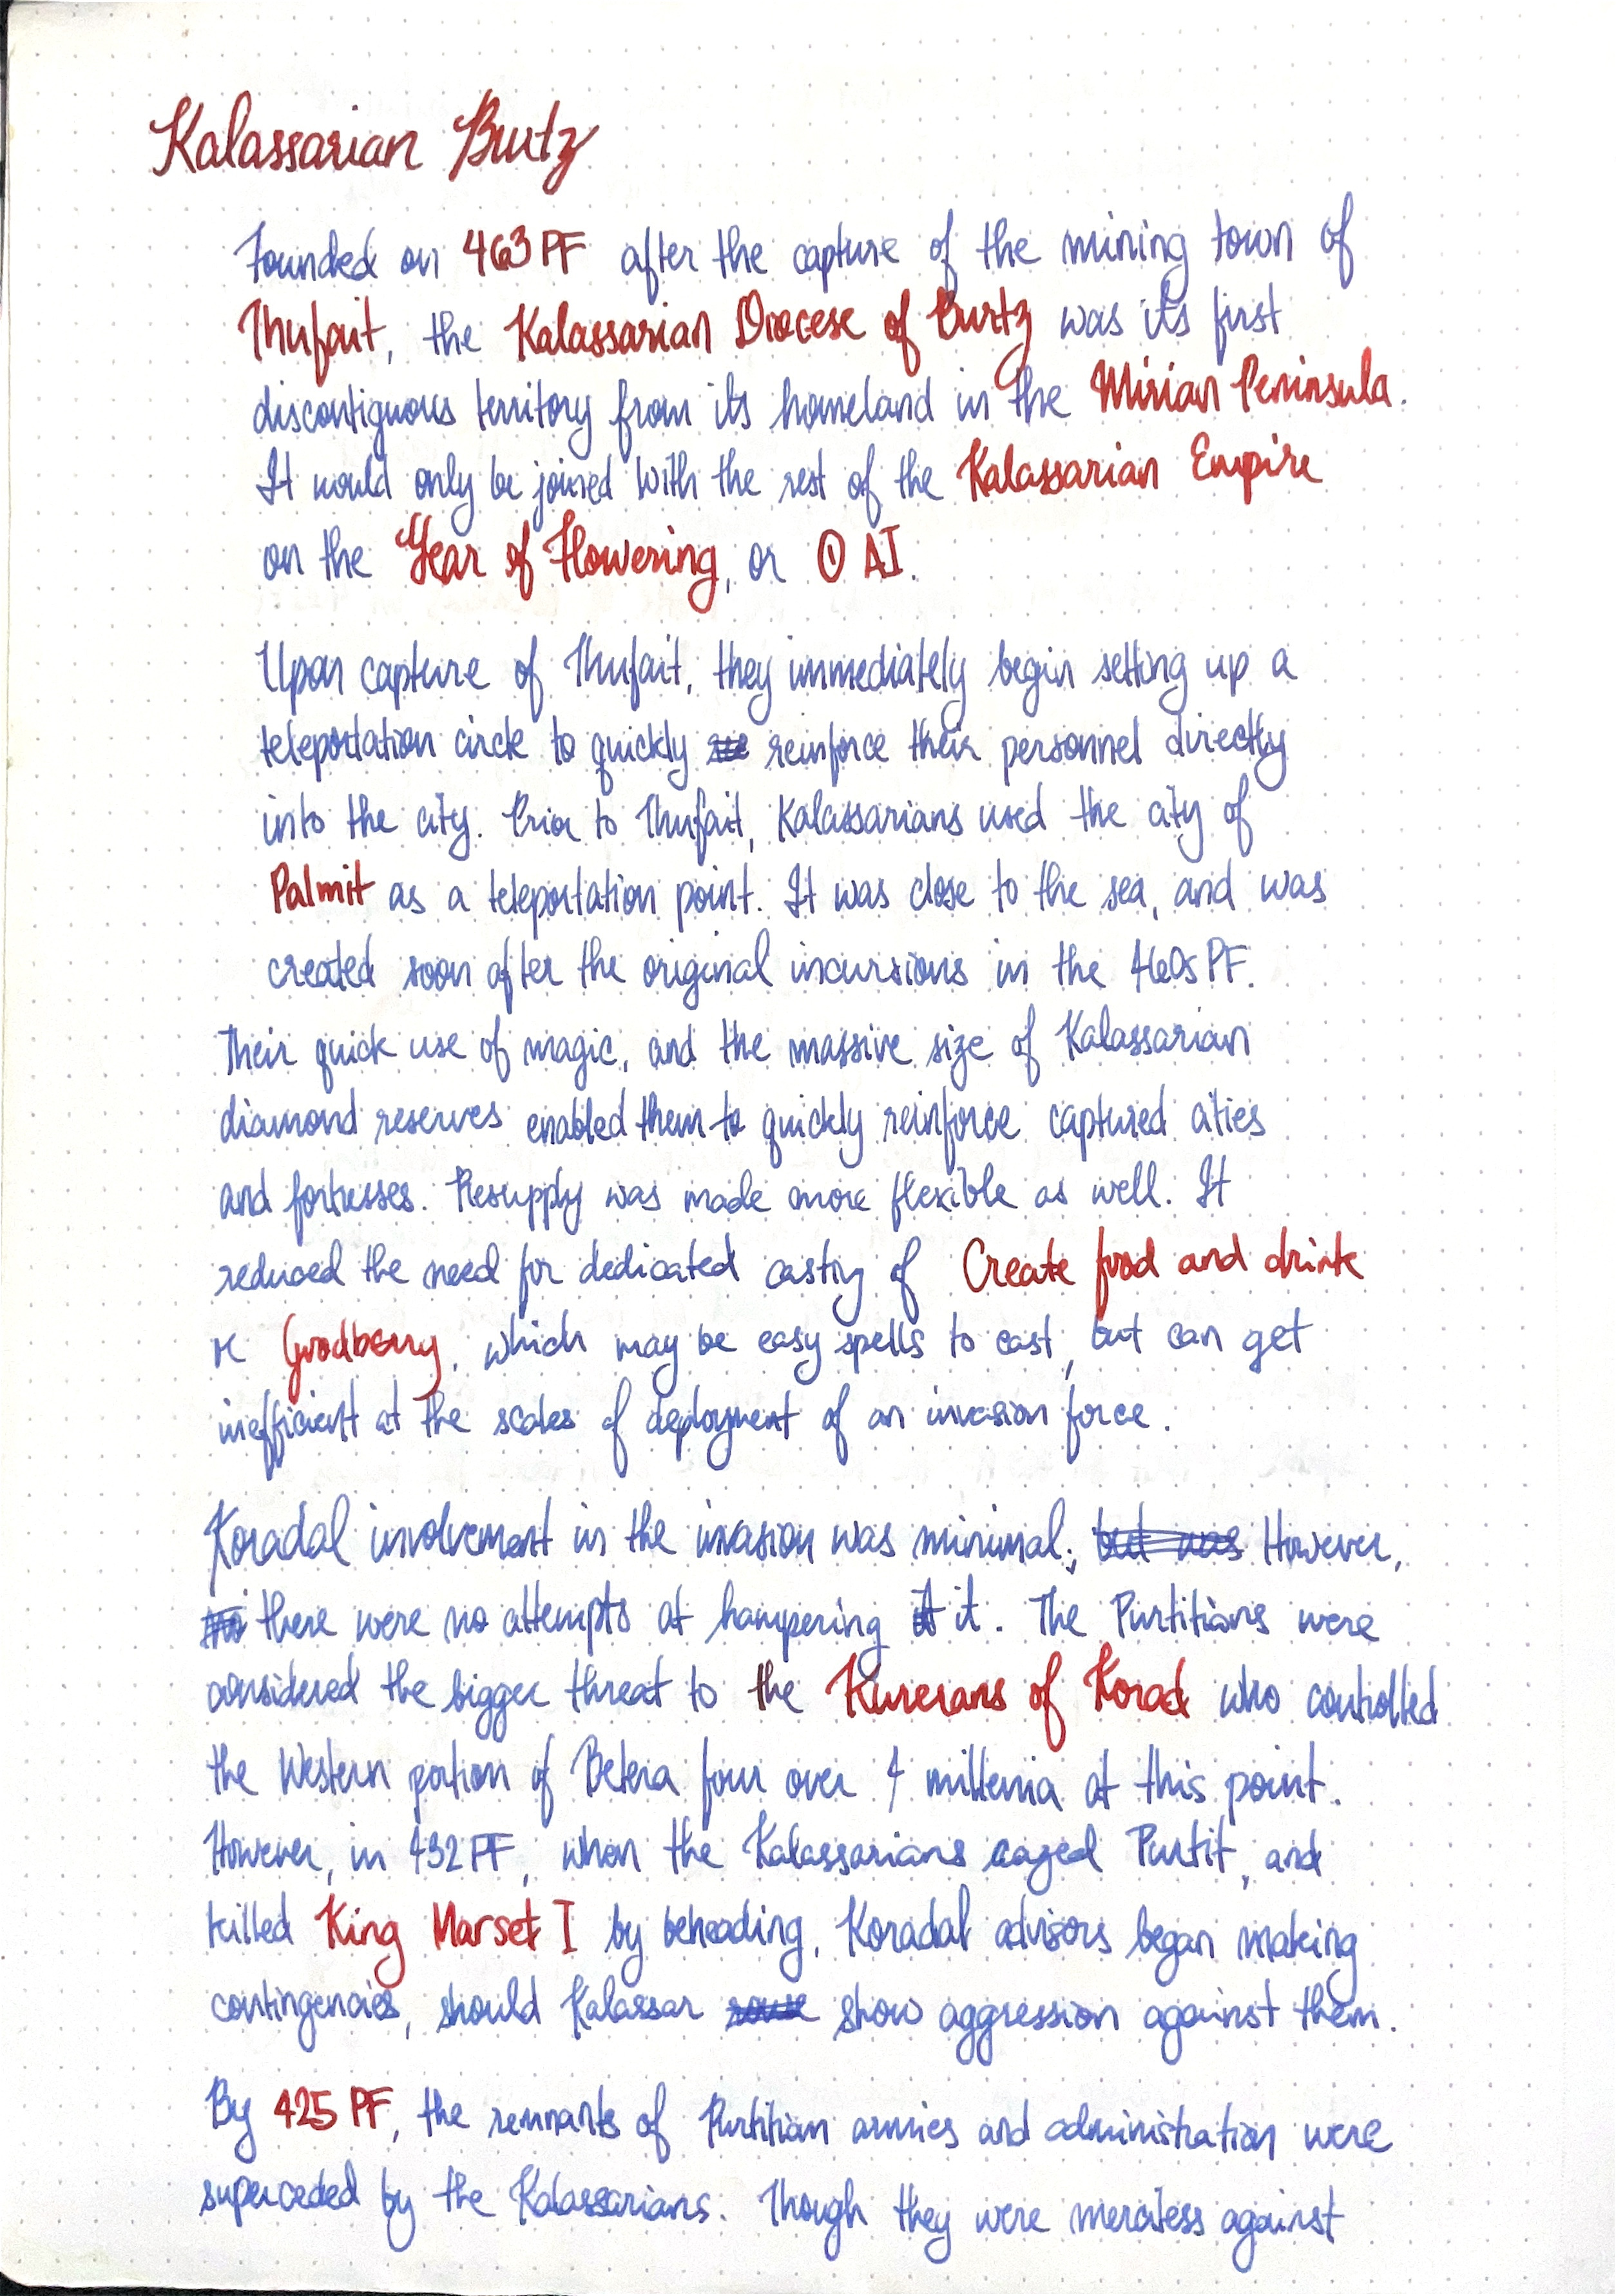 Kalassarian Burtz
Founded on 463 PF after the capture of the mining town of
Thufait, the Kalassarian Diocese of Burtz was its first
discontiguous territory from its homeland in the Mirian Peninsula.
It would only be joined with the rest of the Kalassarian Empire
on the Year of Flowering, or 0 AI.
Upon capture of Thufait, they immediately begin setting up a
teleportation circle to quickly reinforce their personnel directly
into the city. Prior to Thufait, Kalassarians used the city of
Palmit as a teleportation point. It was close to the sea, and was
created soon after the original incursions in the 460s PF.
Their quick use of magic, and the massive size of Kalassarian
diamond reserves enabled them to quickly reinforce captured cities
and fortresses. Resupply was made more flexible as well. It
reduced the need for dedicated casting of Create food and drink
or Goodberry, which may be easy spells to cast, but can get
inefficient at the scales of deployment of an invasion force.
Koradal involvement in the invasion was minimal; but was However,
there were no attempts at hampering it. The Purtitians were
considered the bigger threat to the Kurerans of Korad who controlled
the Western portion of Betera four over 4 millenia at this point.
However, in 432 PF, when the Kalassarians razed Purtit, and
killed King Marset I by beheading, Koradal advisors began making
contingencies, should Kalassar show aggression against them.
By 425 PF, the remnants of Purtitian armies and administration were
superceded by the Kalassarians. Though they were merciless against